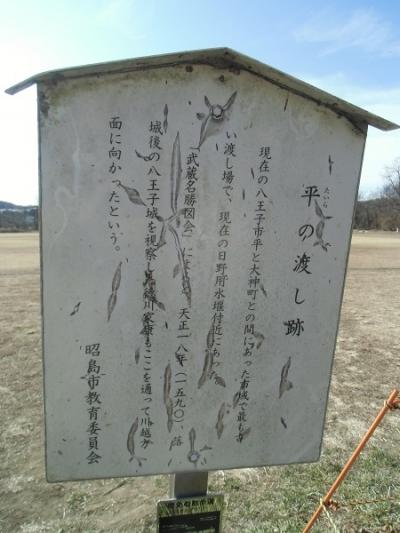 平の渡し跡
たいら
現在の八王子市平と大神町との間にあった市域で最も古
い渡し場で、現在の日野用水堰付近にあっ
「武蔵名勝図会」によ　と、天正一八年（一五九〇）、落
城後の八王子城を視察し　徳川家康もここを通って川越方
面に向かったという。
昭島市教育委員会